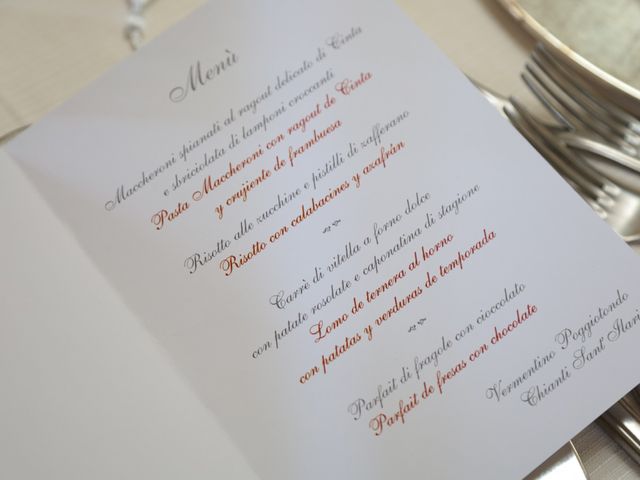 Menù
Maccheroni spianati al ragout delicato di Cinta
e sbriciolata di lamponi croccanti
Pasta Maccheroni con ragout de Cinta
y crujiente de frambuesa
Risotto alle zucchine e pistilli di zafferano
Risotto con calabacines y azafrán
Carrè di vitella a forno dolce
con patate rosolate e caponatina di stagione
Lomo de ternera al horno
con patatas y verduras de temporada
Parfait di fragole con cioccolato
Parfait de fresas con chocolate
Vermentino Poggiotondo
Chianti Sant'